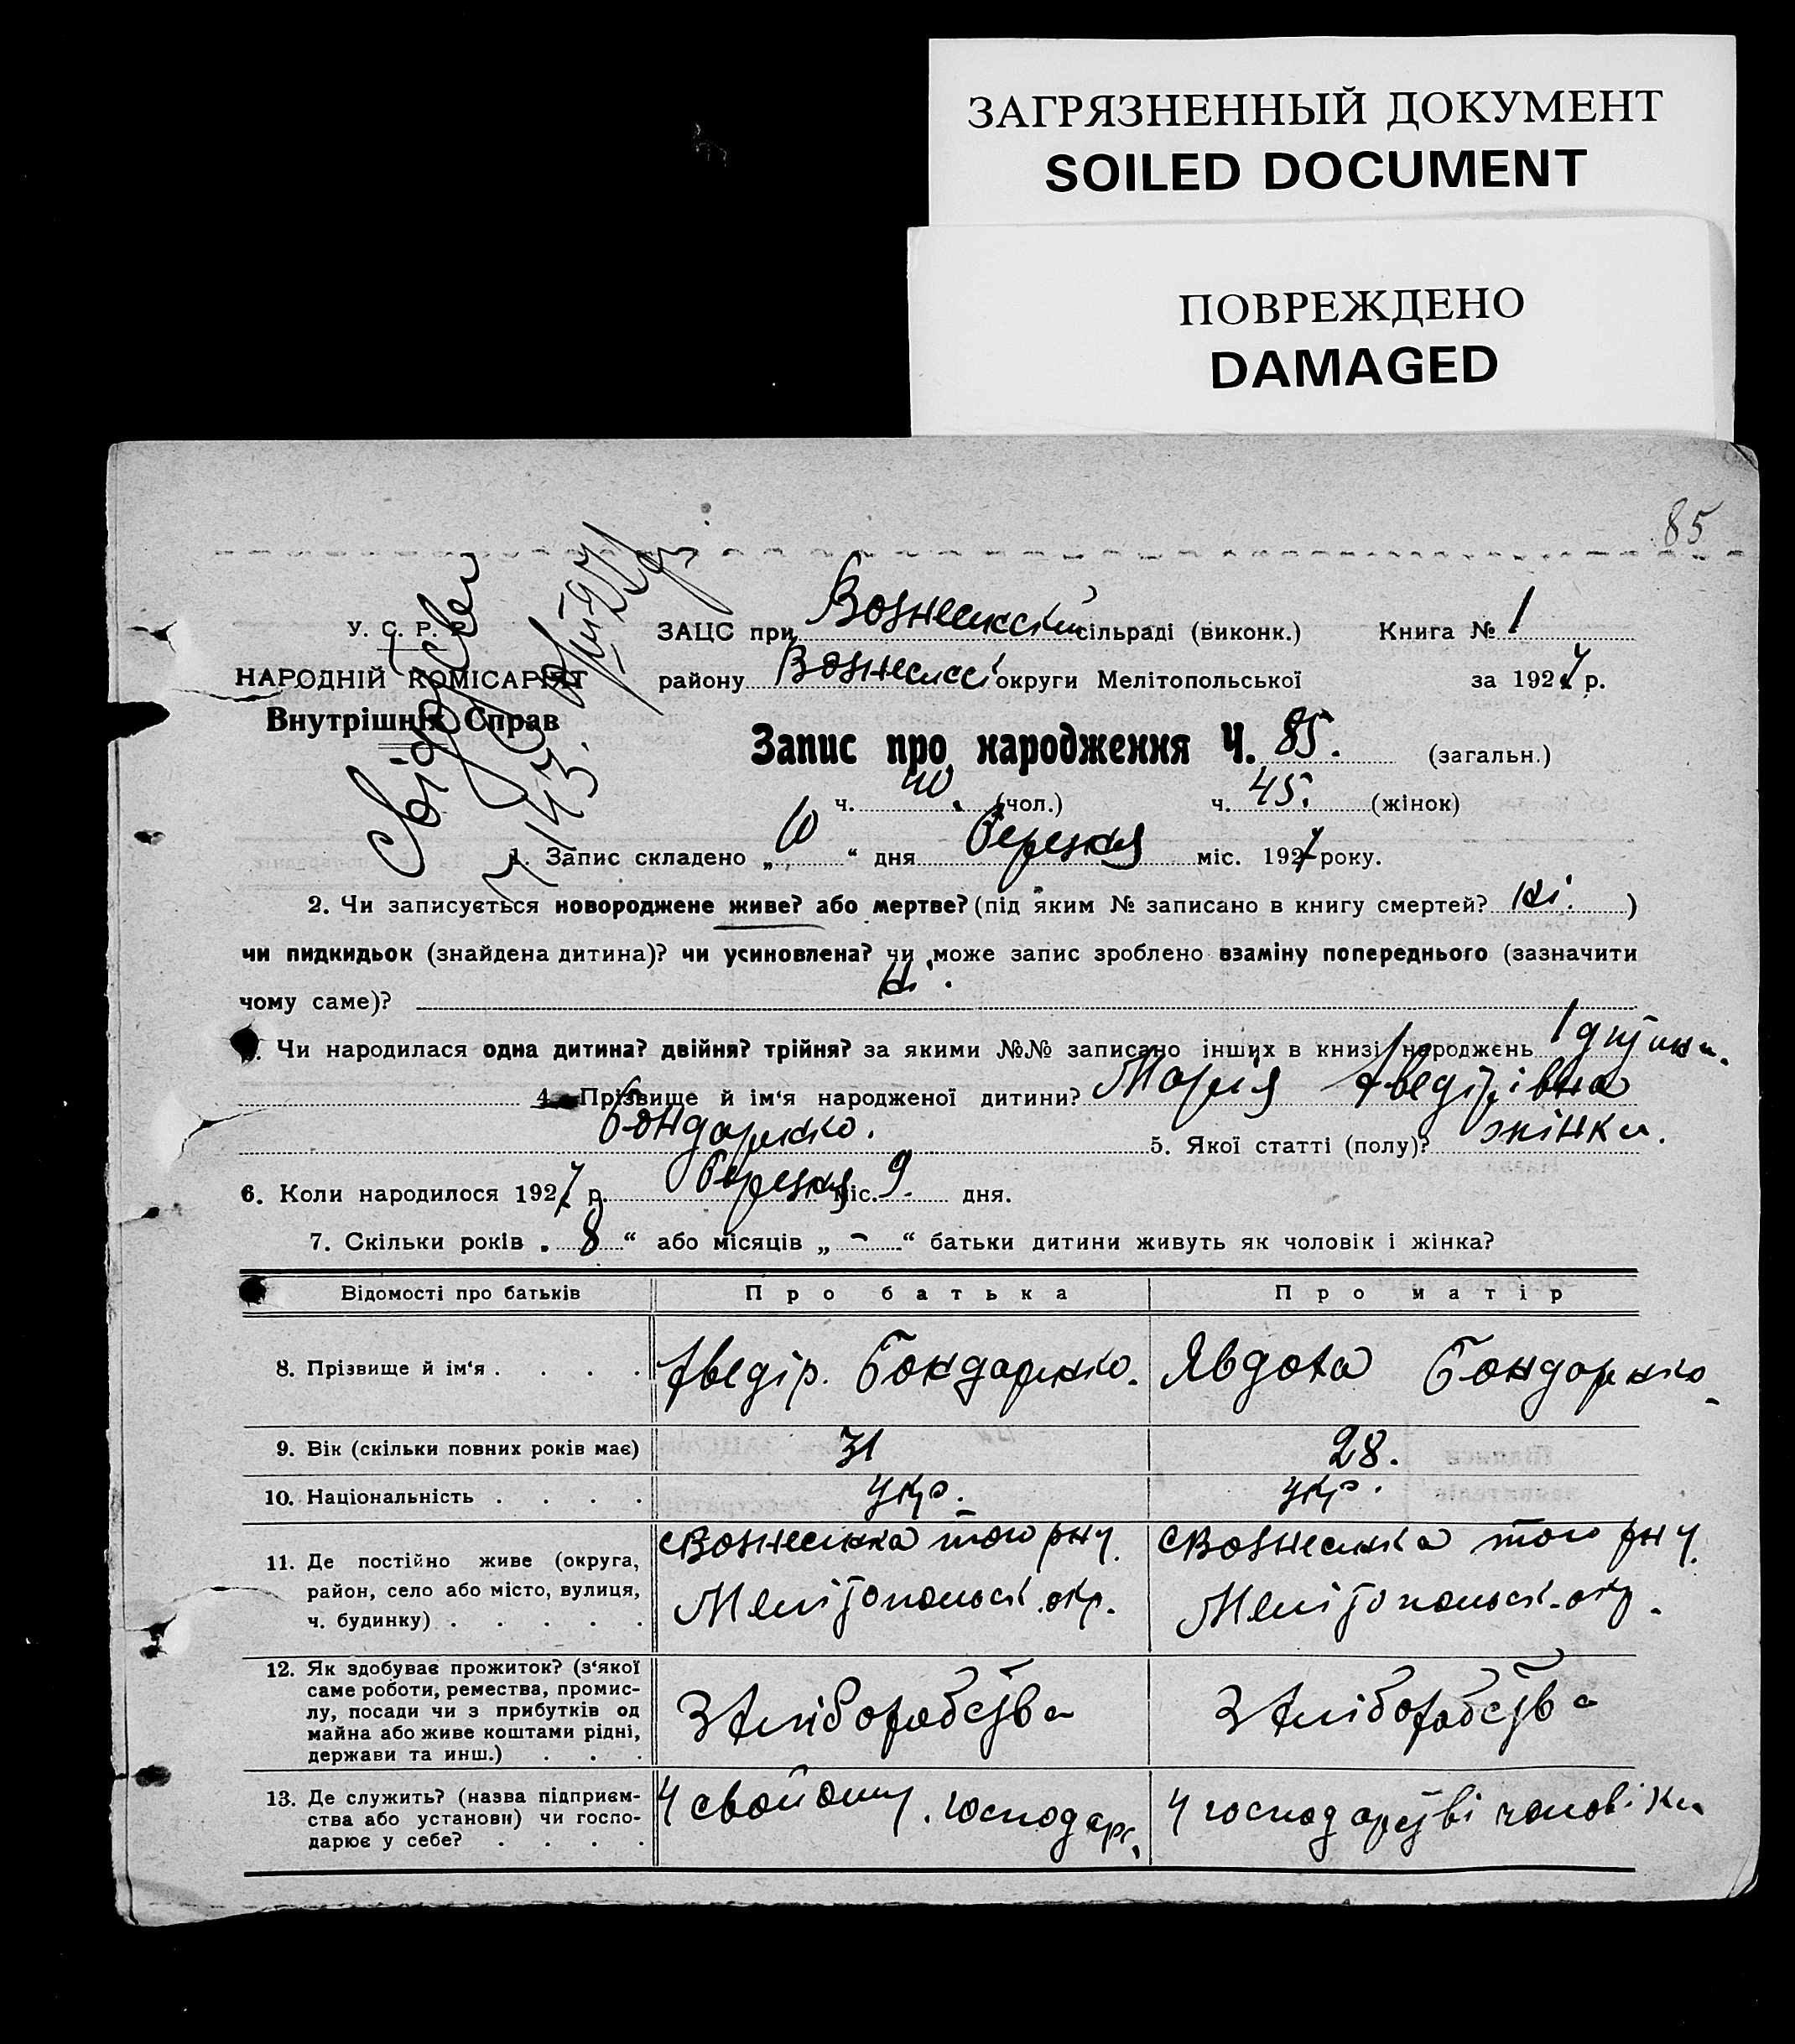 ЗАГРЯЗНЕННЫЙ ДОКУМЕНТ
SOILED DOCUMENT
ПОВРЕЖДЕНО
DAMAGED
85
У. С. Р. Р.
НАРОДНІЙ КОМІСАРІЯТ
Внутрішніх Справ
ЗАЦС при Вознесенскій сільраді (виконк.) Книга № 1
району Вознесенс округи Мелітопольської за 1927 р.
Запис про народження Ч. 85. (загальн.)
ч. 40. (чол.) ч. 45. (жінок)
1. Запис складено „10“ дня Березня міс. 1927 року.
2. Чи записується новороджене живе? або мертве? (під яким № записано в книгу смертей? ні. )
чи пидкидьок (знайдена дитина)? чи усиновлена? чи може запис зроблено взаміну попереднього (зазначити
чому саме)? ні.
Чи народилася одна дитина? двійня? трійня? за якими №№ записано інших в книзі народжень 1
4. Прізвище й ім‘я народженої дитини? Марія Хведірівна
Бондаренко. 5. Якої статті (полу)? жінки.
6. Коли народилося 1927 р. Березня міс. 9. дня.
7. Скільки років „8“ або місяців „-“ батьки дитини живуть як чоловік і жінка?
Відомості про батьків Про батька Про матір
8. Прізвище й ім‘я . . . . Хведір. Бондаренко. Явдоха Бондаренко.
9. Вік (скільки повних років має) 31 28.
10. Національність . . . . укр. укр.
11. Де постійно живе (округа, район, село або місто, вулиця, ч. будинку) . . . . .
с Вознесенка того р-ну. с Вознесенка того р-ну.
Мелітопольск. окр. Мелітопольск. окр.
12. Як здобуває прожиток? (з‘якої
саме роботи, ремества, промис-
лу, посади чи з прибутків од
майна або живе коштами рідні,
держави та инш.) . . .
З хліборобства З хліборобства
13. Де служить? (назва підприєм-
ства або установи) чи госпо-
дарює у себе? . . . .
У свойому господарс. У господарстві чоловіка